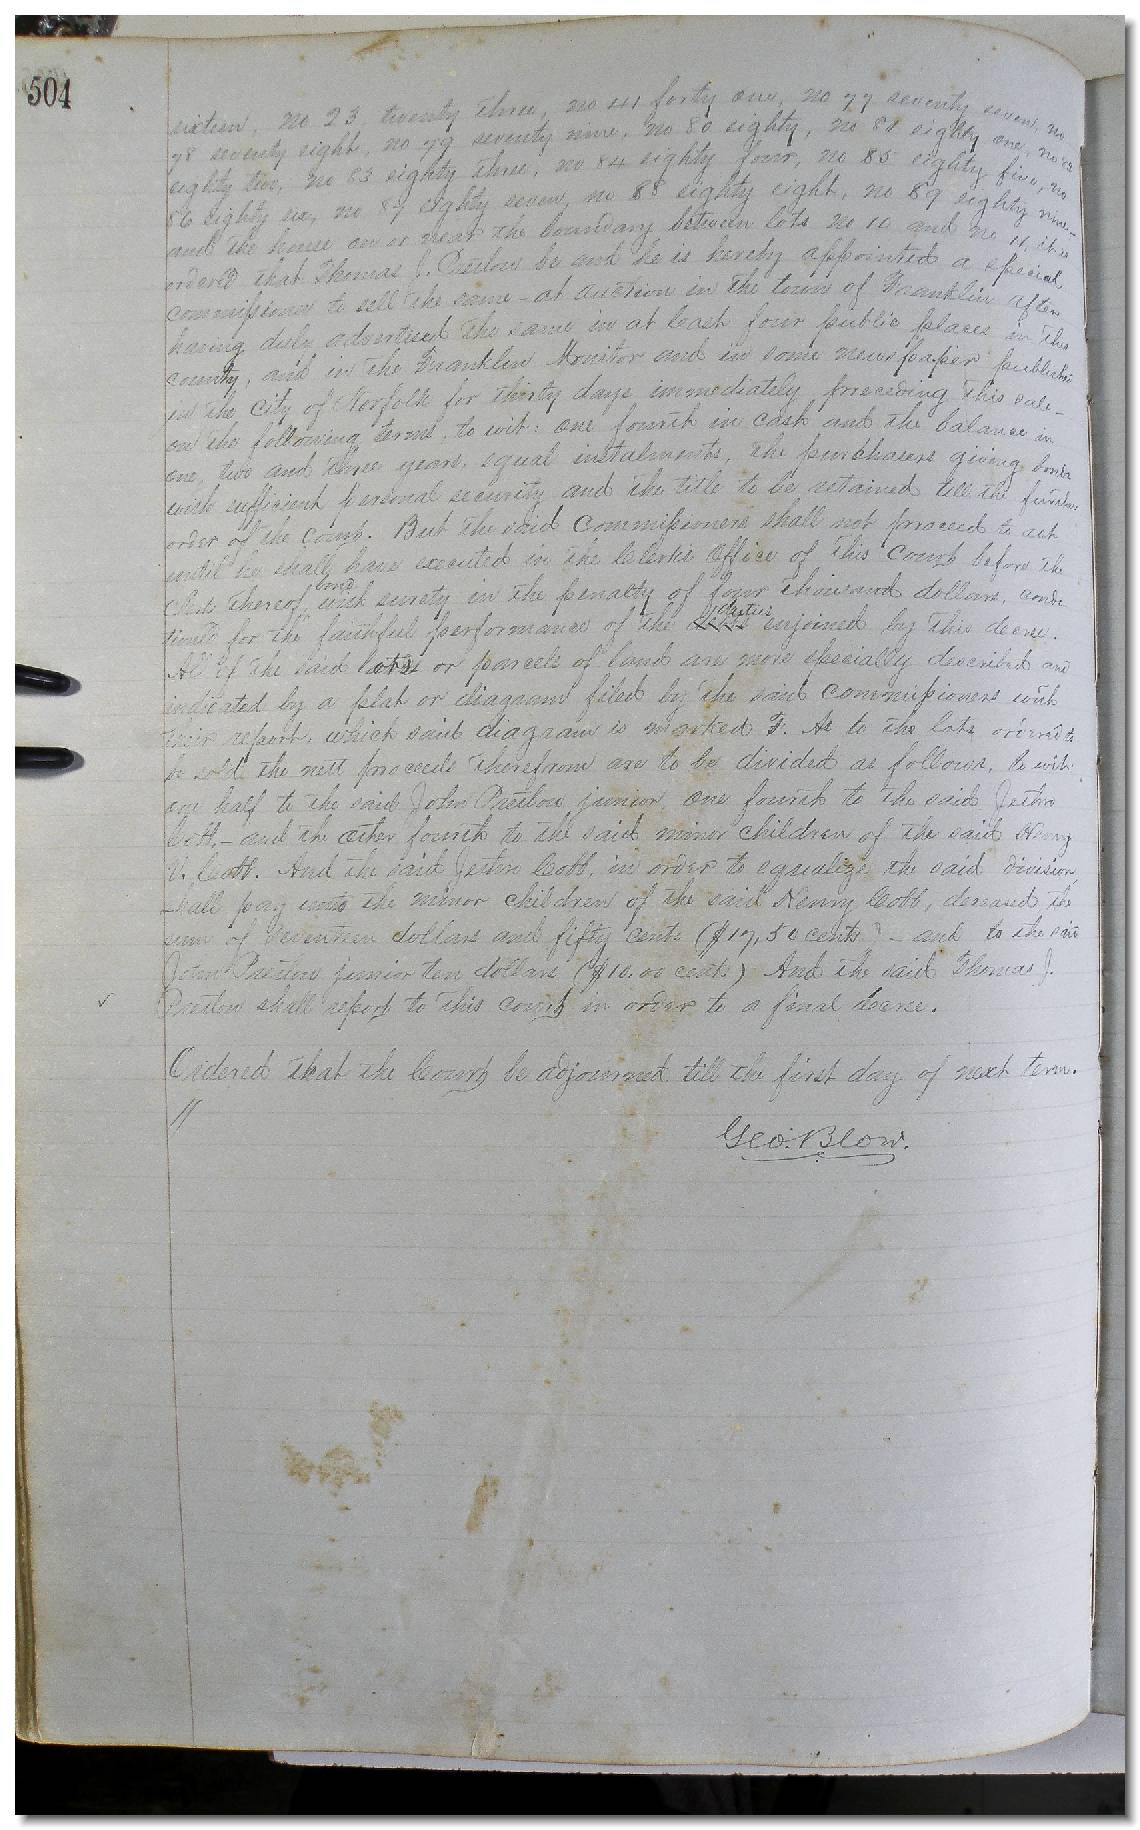 504
sixteen, no 23, twenty three, no 41 forty one, no 77 seventy seven, no
78 seventy eight, no 79 seventy nine, no 80 eighty, no 81 eighty one, no 82
eighty two, no 83 eighty three, no 84 eighty four, no 85 eighty five, no
86 eighty six, no 87 eighty seven, no 88 eighty eight, no 89 eighty nine -
and the house on or near the boundary between lots no 10 and no 11, it is
ordered that Thomas J. Pretlow be and he is hereby appointed a special
commissioner to sell the same - at auction in the town of Franklin after
having duly advertised the same in at least four public places in this
county, and in the Franklin Monitor and in some newspaper published
in the city of Norfolk for thirty days immediately preceeding this sale -
on the following terms, to wit: one fourth in cash and the balance in
one, two and three years, equal instalments, the purchasers giving bonds
with sufficient personal security and the title to be retained till the further
order of the court. But the said Commissioners shall not proceed to act
until he shall have executed in the Clerks Office of this Court before the
Clerk thereof, bond with surety in the penalty of four thousand dollars, condi
tioned for the faithful performance of the duties enjoined by this decree.
All of the said lots or parcels of land are more specially described and
indicated by a plat or diagram filed by the said commissioners with
their report, which said diagram is marked F. As to the lots ordered to
be sold the nett proceeds therefrom are to be divided as follows, to wit:
one half to the said John Pretlow junior, one fourth to the said Jethro
Cobb, - and the other fourth to the said minor children of the said Henry
V. Cobb. And the said Jethro Cobb, in order to equalize the said division
shall pay unto the minor children of the said Henry Cobb, deceased the
sum of seventeen dollars and fifty cents ($17,50 cents) - and to the said
John Pretlow junior ten dollars ($10.00 cents) And the said Thomas J.
✓ Pretlow shall report to this court in order to a final decree.
Ordered that the Court be adjourned till the first day of next term.
//
Geo. Blow.